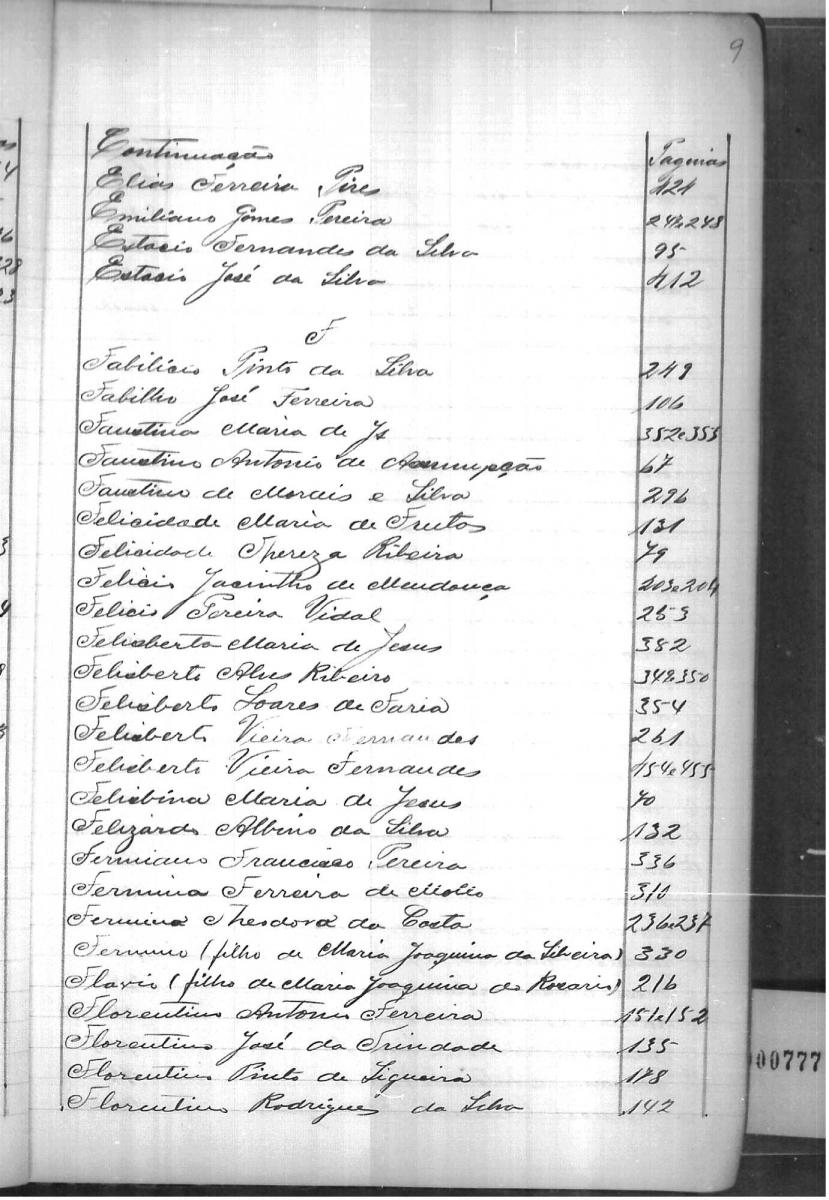 9
Continuação Paginas
Elias Ferreira Pires 121
Emiliano Gomes Pereira 247e248
Estacio Fernandes da Silva 95
Estacio José da Silva 412
F
Fabilicio Pinto da Silva 249
Fabilho José Ferreira 106
Faustina Maria de Js 352e353
Faustino Antonio de Assumpção 67
Faustino de Morais e Silva 296
Felicidade Maria de Freitas 131
Felicidade Thereza Ribeira 79
Felicio Jacintho de Mendonça 203e204
Felicio Pereira Vidal 253
Felisberta Maria de Jesus 382
Felisberto Alves Ribeiro 349e350
Felisberto Soares de Faria 354
Felisberto Vieira Fernandes 261
Felisberto Vieira Fernandes 454e455
Felisbina Maria de Jesus 70
Felizardo Albino da Silva 132
Fermiano Francisco Pereira 336
Fermina Ferreira de Mello 310
Fermina Theodora da Costa 236e237
Fermino (filho de Maria Joaquina da Silveira) 330
Flavio (filho de Maria Joaquina do Rozario) 216
Florentino Antonio Ferreira 151e152
Florentino José da Trindade 135
Florentino Pinto de Siqueira 178
Florentino Rodrigues da Silva 142
000777